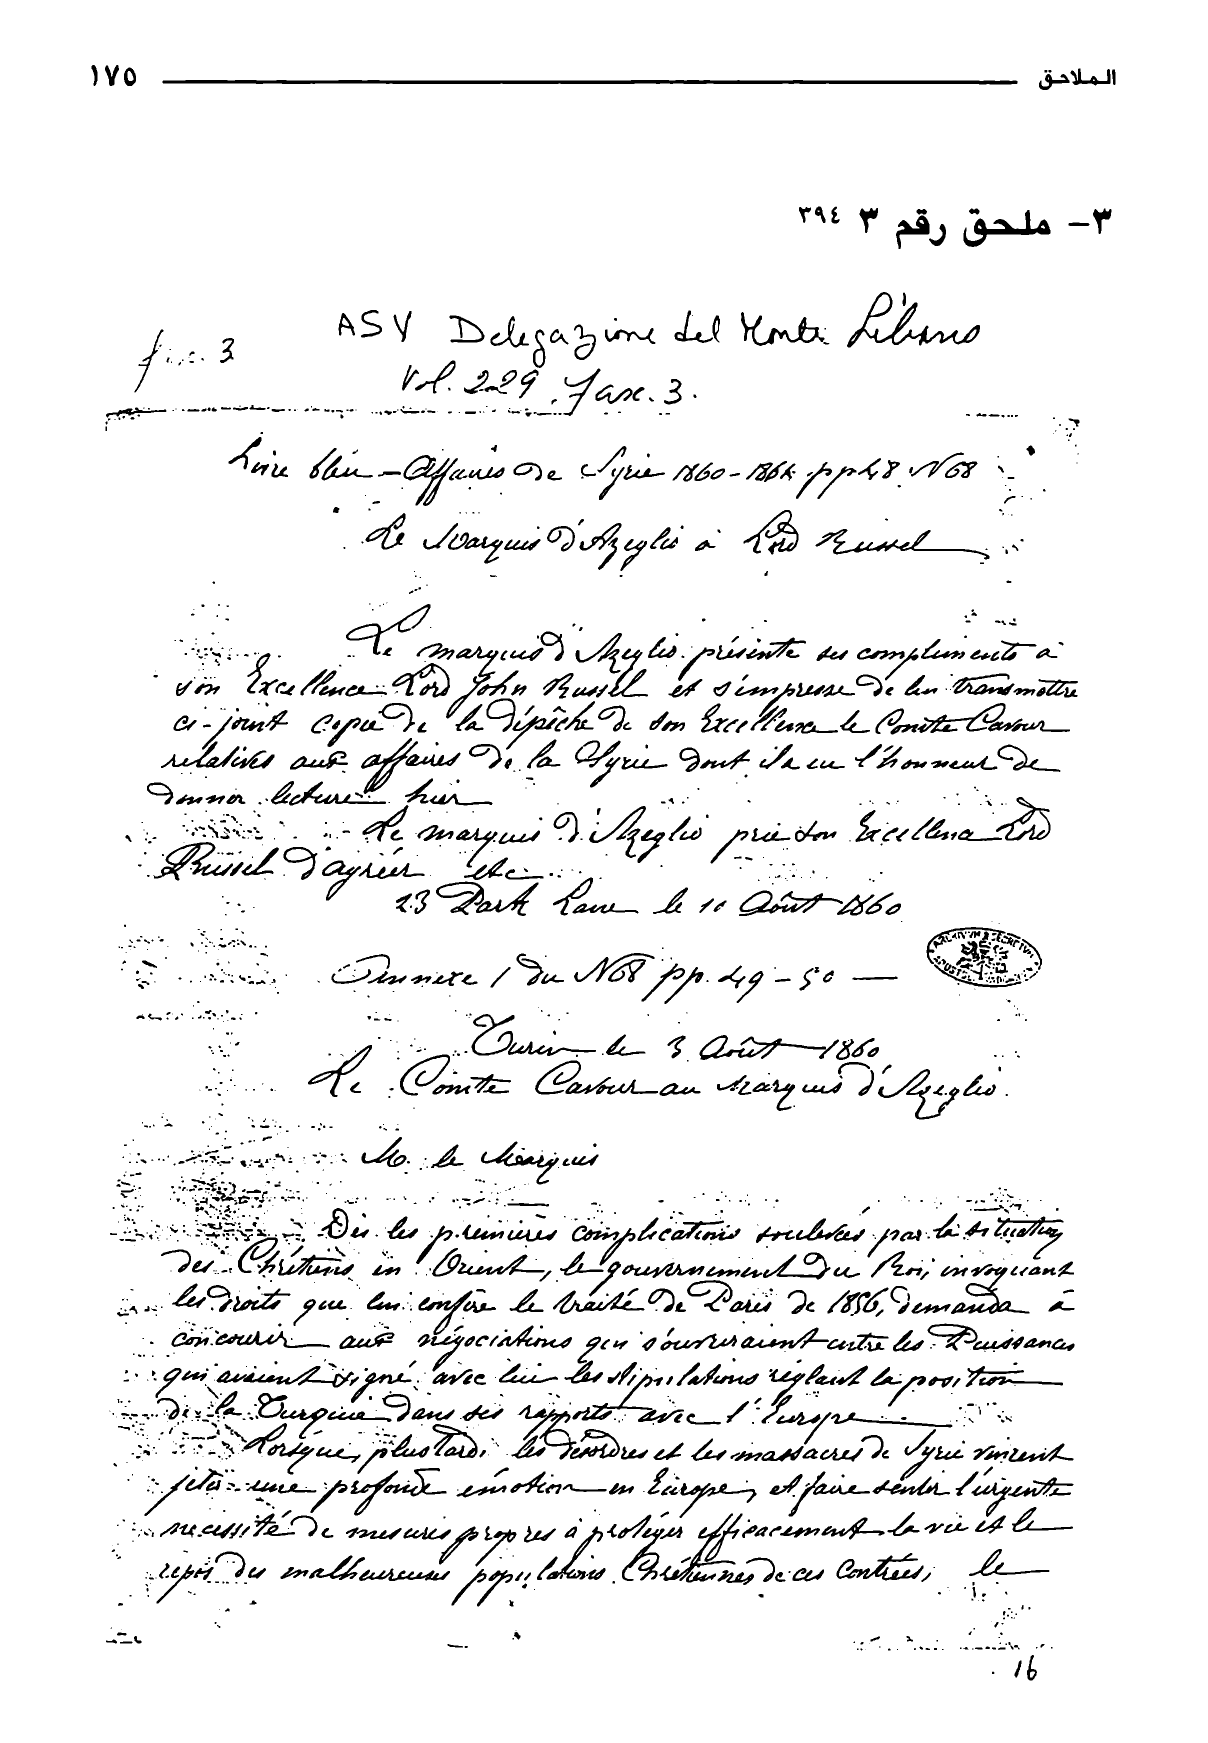 الملاحق ١٧٥
٣- ملحق رقم ٣ ٣٩٤
ASV Delegazione del Monte Libano
fasc. 3
Vol. 229, Fasc. 3.
Livre bleu – Affaires de Syrie 1860-186 pp 48 N 68
Le Marquis d'Azeglio à Lord Russel
Le marquis d'Azeglio présente ses compliments à
son Excellence Lord John Russel et s'empresse de lui transmettre
ci-joint copie de la dépêche de son Excellence le Comte Cavour
relatives aux affaires de la Syrie dont il a eu l'honneur de
donner lecture hier
Le marquis d'Azeglio prie son Excellence Lord
Russel d'agréer etc.
23 Park Lane le 10 Août 1860
ARCHIVUM SECRETUM
Annexe 1 du N 68 pp. 49-50 —
Turin le 3 Août 1860
Le Comte Cavour au Marquis d'Azeglio.
M. le Marquis
Dès les premières complications soulevées par la situation
des Chrétiens en Orient, le gouvernement du Roi, invoquant
les droits que lui confère le traité de Paris de 1856, demanda à
concourir aux négociations qui s'ouvriraient entre les Puissances
qui avaient signé avec lui les stipulations réglant la position
de la Turquie dans ses rapports avec l'Europe
Lorsque, plus tard, les désordres et les massacres de Syrie vinrent
jeter une profonde émotion en Europe, et faire sentir l'urgente
nécessité de mesures propres à protéger efficacement la vie et le
repos des malheureuses populations Chrétiennes de ces contrées, le
16